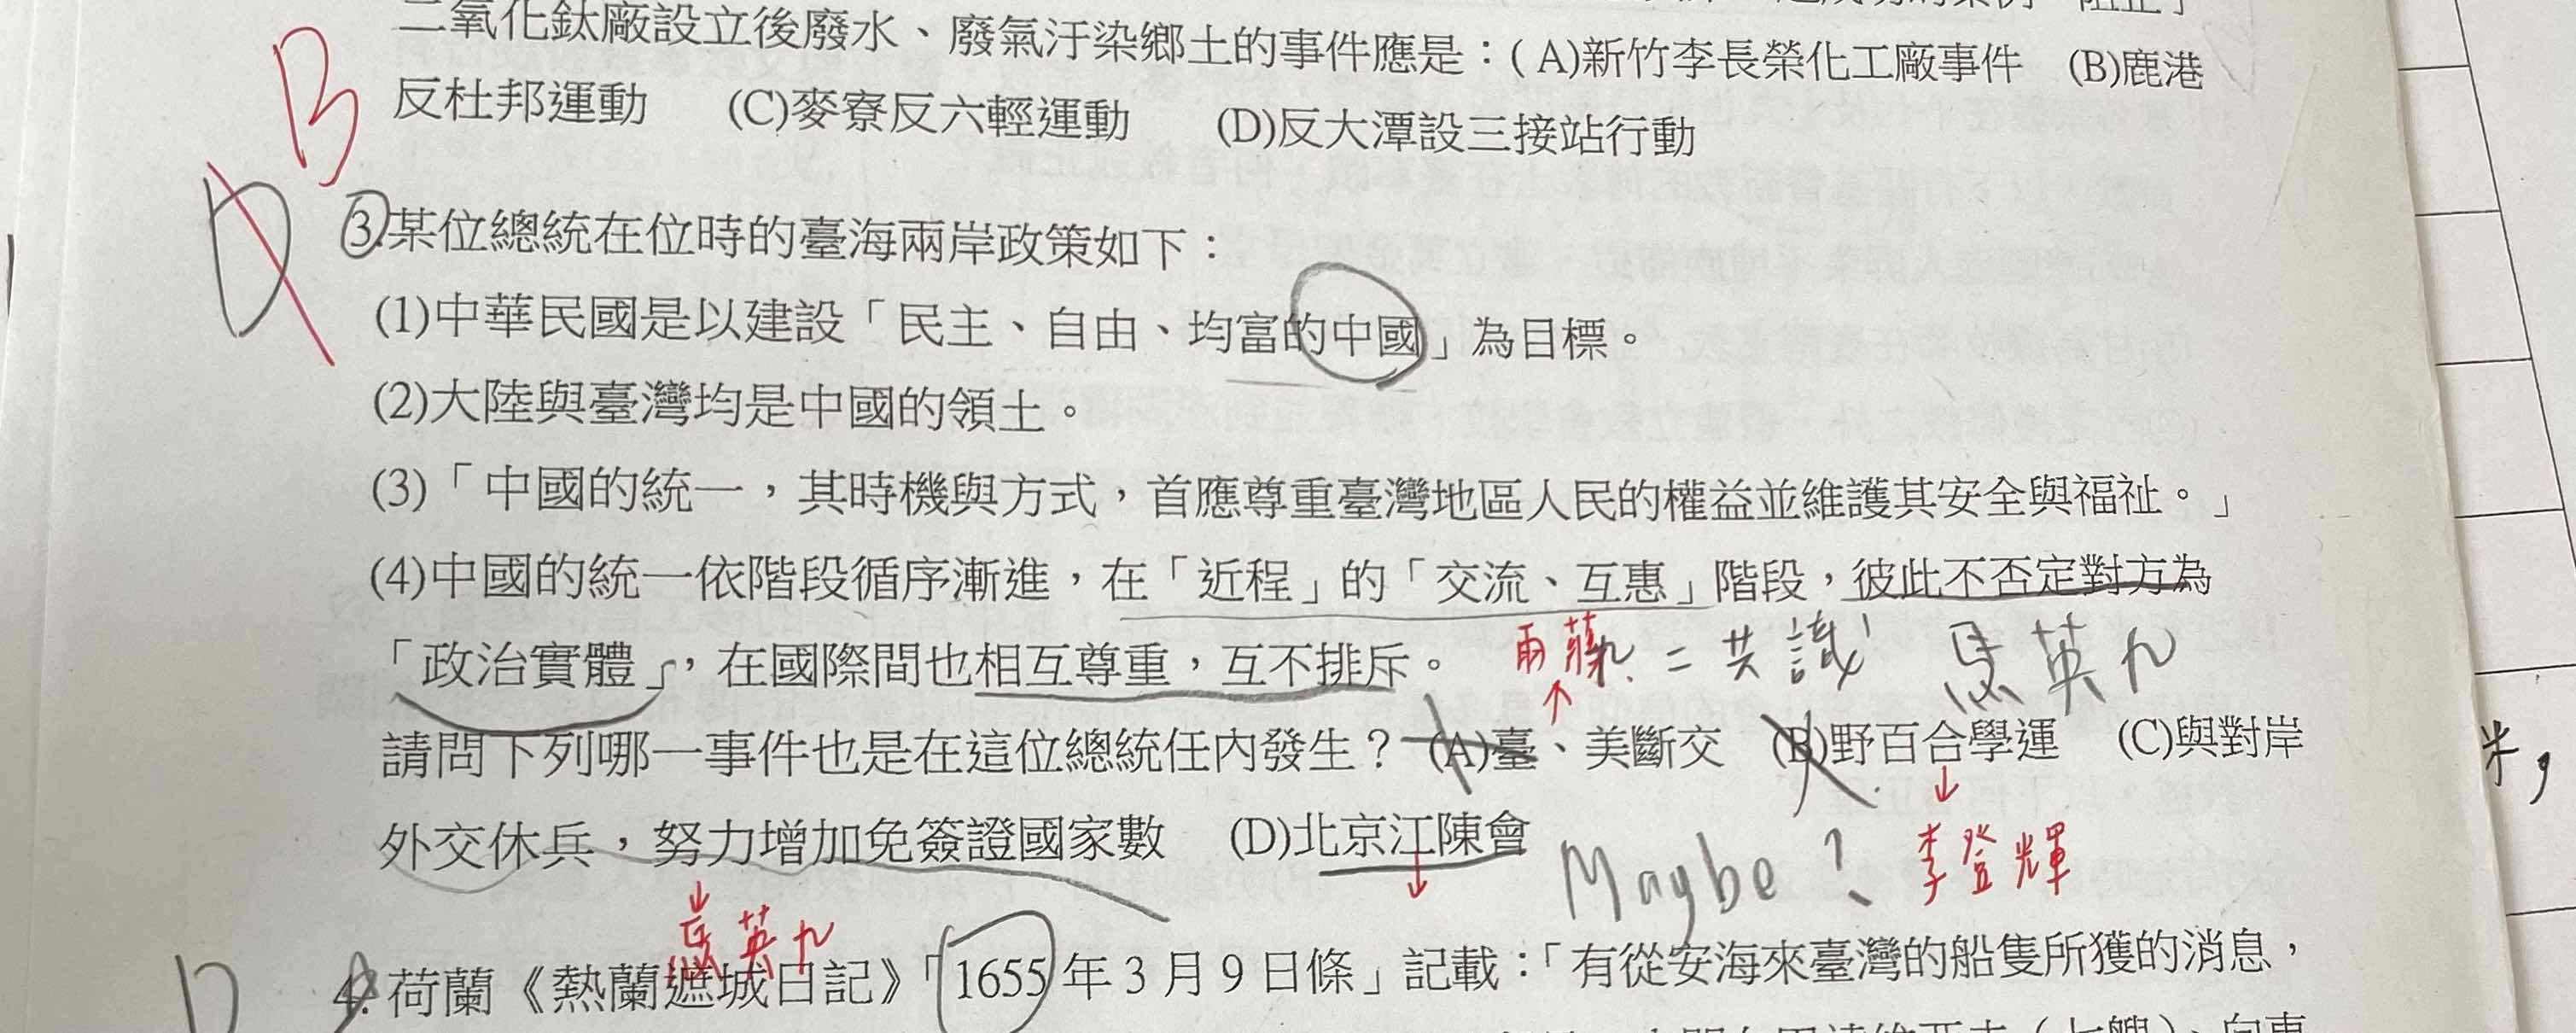 二氧化鈦廠設立後廢水、廢氣汙染鄉土的事件應是：(A)新竹李長榮化工廠事件 (B)鹿港
反杜邦運動 (C)麥寮反六輕運動 (D)反大潭設三接站行動
B
D
3.某位總統在位時的臺海兩岸政策如下：
(1)中華民國是以建設「民主、自由、均富的中國」為目標。
(2)大陸與臺灣均是中國的領土。
(3)「中國的統一，其時機與方式，首應尊重臺灣地區人民的權益並維護其安全與福祉。」
(4)中國的統一依階段循序漸進，在「近程」的「交流、互惠」階段，彼此不否定對方為
「政治實體」，在國際間也相互尊重，互不排斥。
兩蔣 九二共識 馬英九
請問下列哪一事件也是在這位總統任內發生？ (A)臺、美斷交 (B)野百合學運 (C)與對岸
外交休兵，努力增加免簽證國家數 (D)北京江陳會
Maybe? 李登輝
馬英九
D
4.荷蘭《熱蘭遮城日記》「1655年3月9日條」記載：「有從安海來臺灣的船隻所獲的消息，